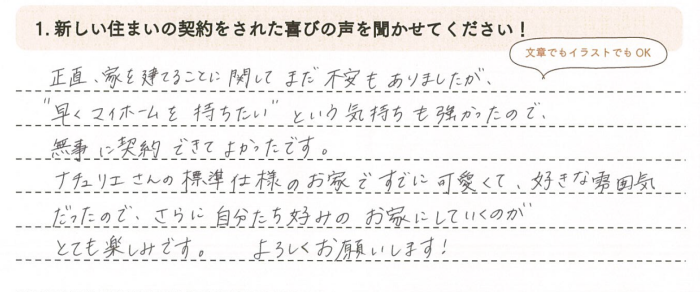 1. 新しい住まいの契約をされた喜びの声を聞かせてください！
文章でもイラストでもOK
正直、家を建てることに関してまだ不安もありましたが、
"早くマイホームを持ちたい"という気持ちも強かったので、
無事に契約できてよかったです。
ナチュリエさんの標準仕様のお家ですでに可愛くて、好きな雰囲気
だったので、さらに自分たち好みのお家にしていくのが
とても楽しみです。 よろしくお願いします！